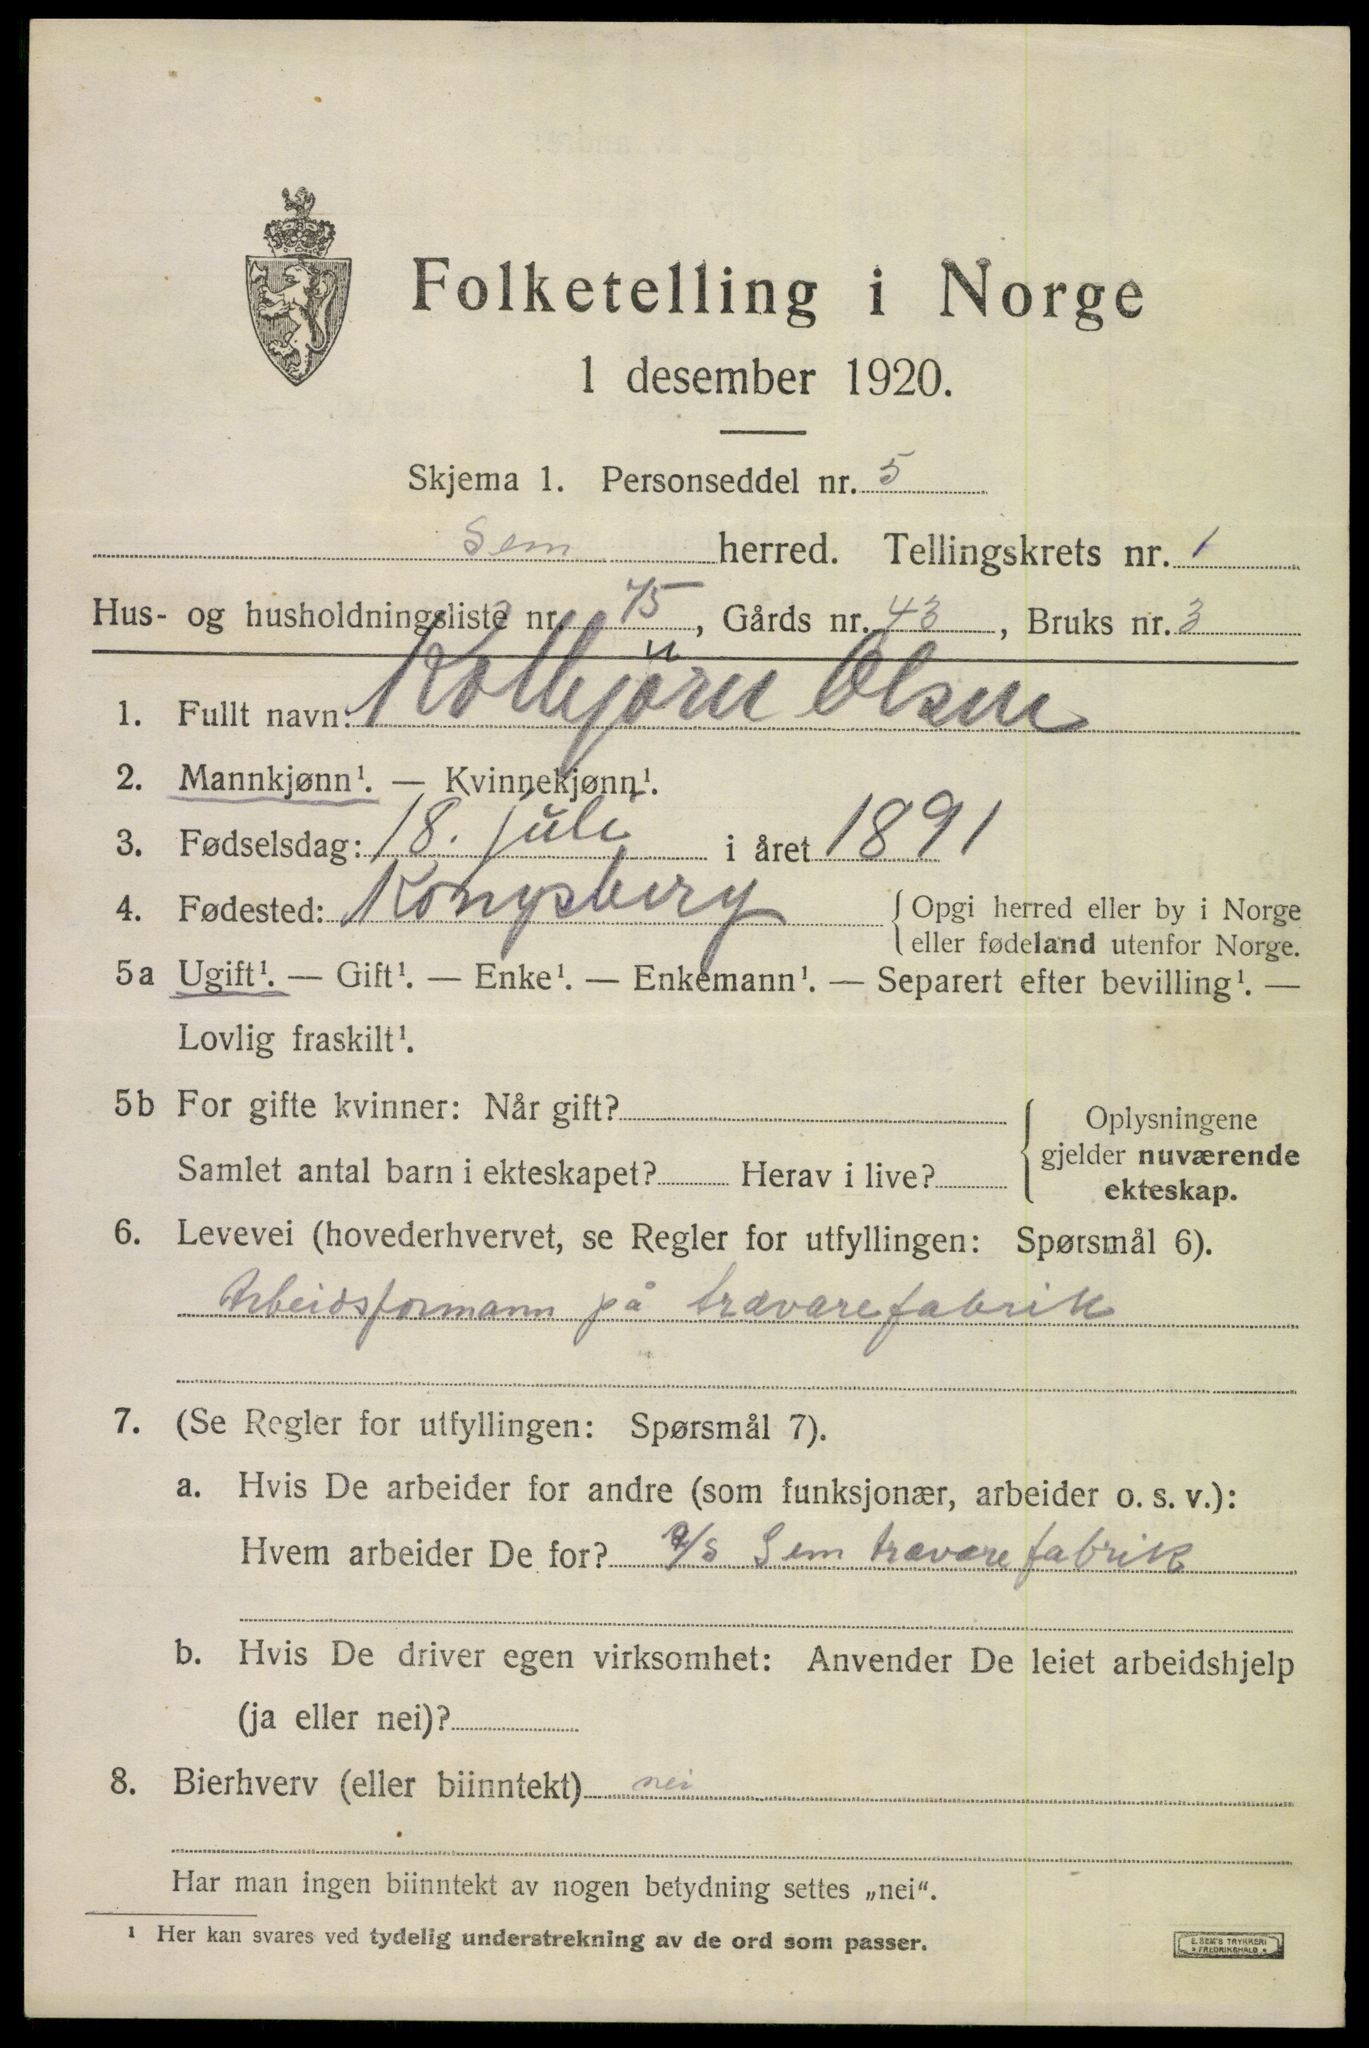 Folketelling i Norge
1 desember 1920.
Skjema 1. Personseddel nr. 5
Sem herred. Tellingskrets nr. 1
Hus- og husholdningsliste nr. 75, Gårds nr. 43, Bruks nr. 3
1. Fullt navn: Kolbjörn Olsen
2. Mannkjønn¹. — Kvinnekjønn¹.
3. Fødselsdag: 18. juli i året 1891
4. Fødested: Kongsberg { Opgi herred eller by i Norge
eller fødeland utenfor Norge.
5a Ugift¹. — Gift¹. — Enke¹. — Enkemann¹. — Separert efter bevilling¹. —
Lovlig fraskilt¹.
5b For gifte kvinner: Når gift?
Samlet antal barn i ekteskapet? Herav i live?
{ Oplysningene
gjelder nuværende
ekteskap.
6. Levevei (hovederhvervet, se Regler for utfyllingen: Spørsmål 6).
Arbeidsformann på trævarefabrik
7. (Se Regler for utfyllingen: Spørsmål 7).
a. Hvis De arbeider for andre (som funksjonær, arbeider o. s. v.):
Hvem arbeider De for? a/s Sem trævarefabrik
b. Hvis De driver egen virksomhet: Anvender De leiet arbeidshjelp
(ja eller nei)?
8. Bierhverv (eller biinntekt) nei
Har man ingen biinntekt av nogen betydning settes „nei“.
¹ Her kan svares ved tydelig understrekning av de ord som passer.
E. SEM'S TRYKKERI
FREDRIKSHALD